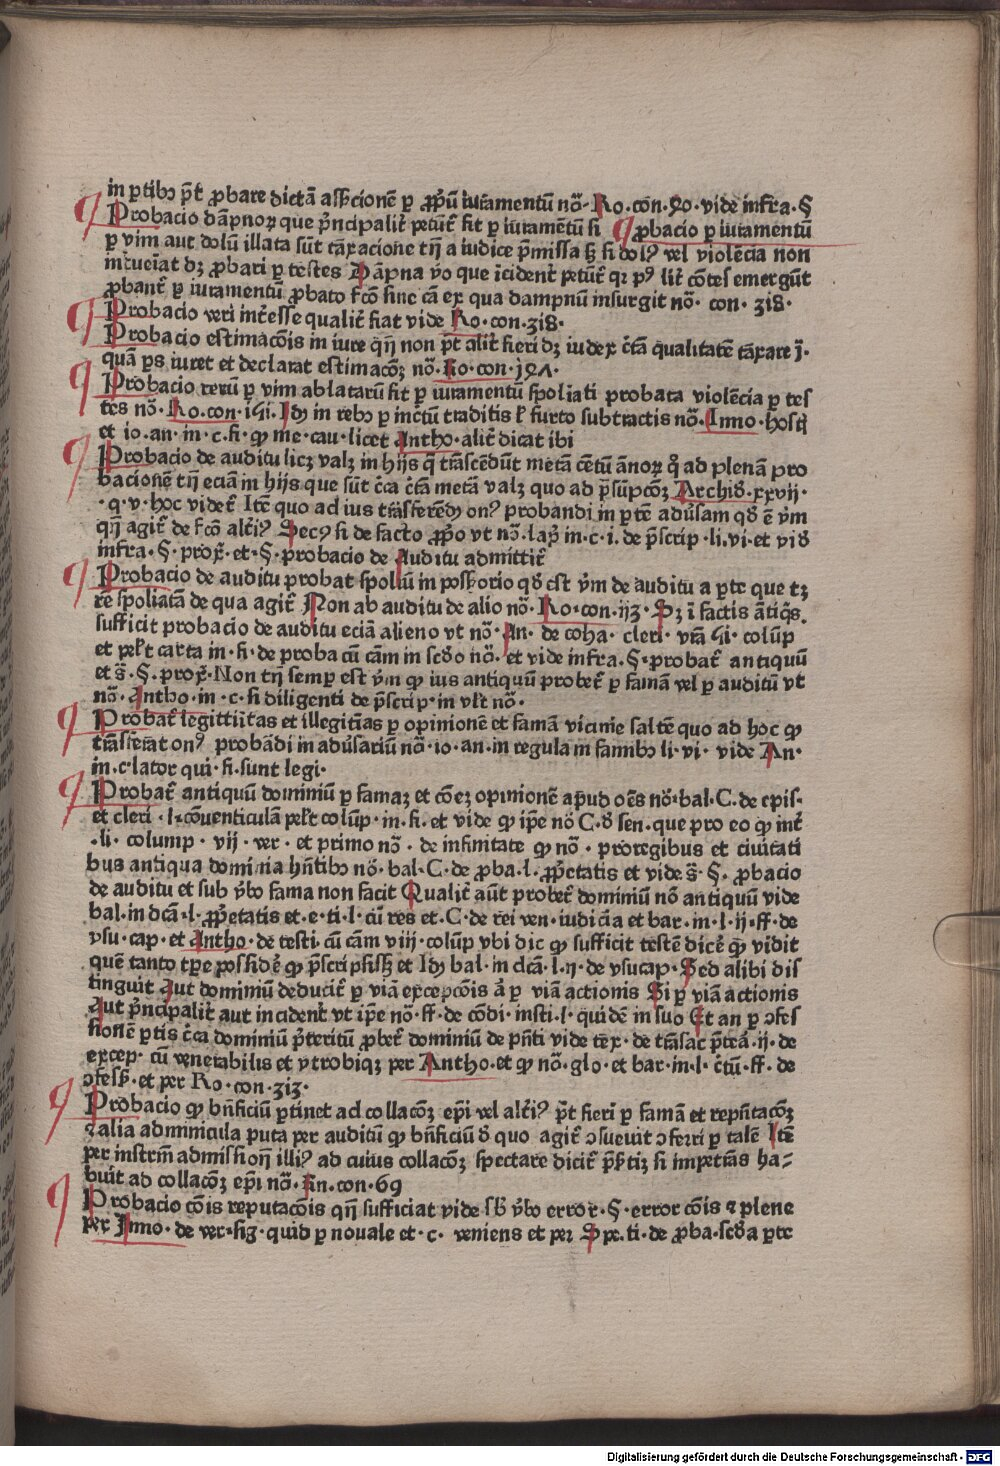 in ꝑtibꝫ p̄t ꝓbare dictā asẜcionē ꝑ ꝓpͥū iuramentū nō· Ro·con·90·vide infra·§
Probacio dāpnoꝝ que pͥncipalit᷑ petūt᷑ fit ꝑ iuramētū si ꝓbacio ꝑ iuramentū
ꝑ vim aut dolū illata sūt taxacione tn̄ a iudice p̄missa sꝫ si dolꝰ vel violēcia non
inteuēiat dꝫ ꝓbari ꝑ testes Dāpna v̄o que īcident᷑ petūt᷑ qꝛ pꝰ lit᷑ cōtes emergūt
ꝓbant᷑ ꝑ iuramentū ꝓbato fc̄o sine cā ex qua dampnū insurgit nō· con· 318·
Probacio veri int̄esse qualit᷑ fiat vide Ro·con·318·
Probacio estimacōis in iure qn̄ non p̄t alit᷑ fieri dꝫ iudex c̄tā qualitatē taxare ī·
quā ꝑs iuret et declarat estimacōꝫ nō· Ro·con·191·
Probacio rerū ꝑ vim ablatarū fit ꝑ iuramentū spoliati probata violēcia ꝑ tes
tes nō· Ro·con·151· Idꝫ in rebꝫ ꝑ inc̄tū traditis ł furto subtractis nō· Inno·hosti
et io·an·in·c·fi·ꝙ me·cau·licet Antho·alit᷑ dicat ibi
Probacio de auditu licꝫ valꝫ in hijs q̄ trāscēdūt metā cētū ānoꝝ qͦ ad plenā pro
bacionē tn̄ eciā in hijs que sūt c̄ca c̄tā metā valꝫ quo ad p̄sūpcōꝫ Archid̄·xxvij·
·q·v·hoc videt᷑ Itē quo ad ius trāsferēdꝫ onꝰ probandi in ꝑtē adūsam qd̄ ē v̄m
qn̄ agit᷑ de fc̄o alt̄iꝰ Secꝰ si de facto ꝓpͥo vt nō·lap̄ in·c·i·de p̄scrip·li·vi·et vid̄
infra·§·prox̄·et·§·probacio de Auditu admittit᷑
Probacio de auditu probat spoliū in possorio qd̄ est v̄m de auditu a ꝑte que tꝫ
re spoliatā de qua agit᷑ Non ab auditu de alio nō· Ro·con·113· Sꝫ ī factis ātiqͥs
sufficit probacio de auditu eciā alieno vt nō· An· de coha· cleri· vtā 51· colūp
et pelt carta in·fi·de proba cū cām in sc̄do nō· et vide infra·§·probat᷑ antiquū
et s̄·§·prox̄·Non tn̄ semꝑ est v̄m ꝙ ius antiquū probet᷑ ꝑ famā vel ꝑ auditū vt
nō· Antho·in·c·si diligenti de p̄scrip·in vlt nō·
Probat᷑ legittītas et illegitīas ꝑ opinionē et famā vicinie saltē quo ad hoc ꝙ
trāsferat onꝰ probādi in adūsariū nō·io·an·in regula in famibꝫ li·vi· vide An·
in·c·lator qui·fi·sunt legi·
Probat᷑ antiquū dominiū ꝑ famaꝫ et cōeꝫ opinionē apud oēs nō·bal·C·de epis·
et cleri·l·cōuenticulā pelt colūp·in·fi·et vide ꝙ ip̄e nō C·d̄ sen·que pro eo ꝙ int᷑
·li· colump· vij· ver· et primo nō· de infinitate ꝙ nō· proregibus et ciuitati
bus antiqua dominia hn̄tibꝫ nō· bal·C·de ꝓba·l·ꝓpͥetatis et vide s̄·§·ꝓbacio
de auditu et sub v̄bo fama non facit Qualit᷑ aūt probet᷑ dominiū nō antiquū vide
bal·in dc̄ā·l·ꝓpͥetatis et·e·ti·l·cū res et·C·de rei ven·iudicīa et bar·in·l·ij·ff·de
vsu·cap·et Antho·de testi·cū cām viij·colūp vbi dic ꝙ sufficit testē dicē ꝙ vidit
quē tanto tꝑe possidē ꝙ p̄scripsissꝫ et Idꝫ bal·in dc̄ā·l·ij·de vsucap·Sed alibi dis
tinguit Aut dominiū deducit᷑ ꝑ viā excepcōis ā ꝑ viā actionis Si ꝑ viā actionis
Aut pͥncipalit᷑ aut incident᷑ vt ip̄e nō·ff·de cōdi·insti·l·quidē in suo Et an ꝑ ꝯfes
sionē ꝑtis c̄ca dominiū p̄teritū ꝓbet᷑ dominiū de pn̄ti vide tex·de trāsac p̄teā·ij·de
excep·cū venerabilis et vtrobiqꝫ per Antho·et ꝙ nō·glo·et bar·in·l·c̄tū·ff·de
ꝯfesẜ·et per Ro·con·313·
Probacio ꝙ bn̄ficiū ꝑtinet ad collacōꝫ ep̄i vel alt̄iꝰ p̄t fieri ꝑ famā et reputacōꝫ
⁊alia adminicula puta per auditū ꝙ bn̄ficiū d̄ quo agit᷑ ꝯsueuit ꝯferri ꝑ talē Itē
per instrm̄ admissionꝫ illiꝰ ad cuius collacōꝫ spectare dicit᷑ p̄ẜtiꝫ si impetrās ha⸗
buit ad collacōꝫ ep̄i nō· An·con·69
Probacio cōis reputacōis qn̄ sufficiat vide sb̄ v̄bo error·§·error cōis ⁊ plene
per Inno·de ver·sig·quid ꝑ nouale et·c· veniens et per Spe·ti·de ꝓba·sc̄da ꝑte
Digitalisierung gefördert durch die Deutsche Forschungsgemeinschaft - DFG